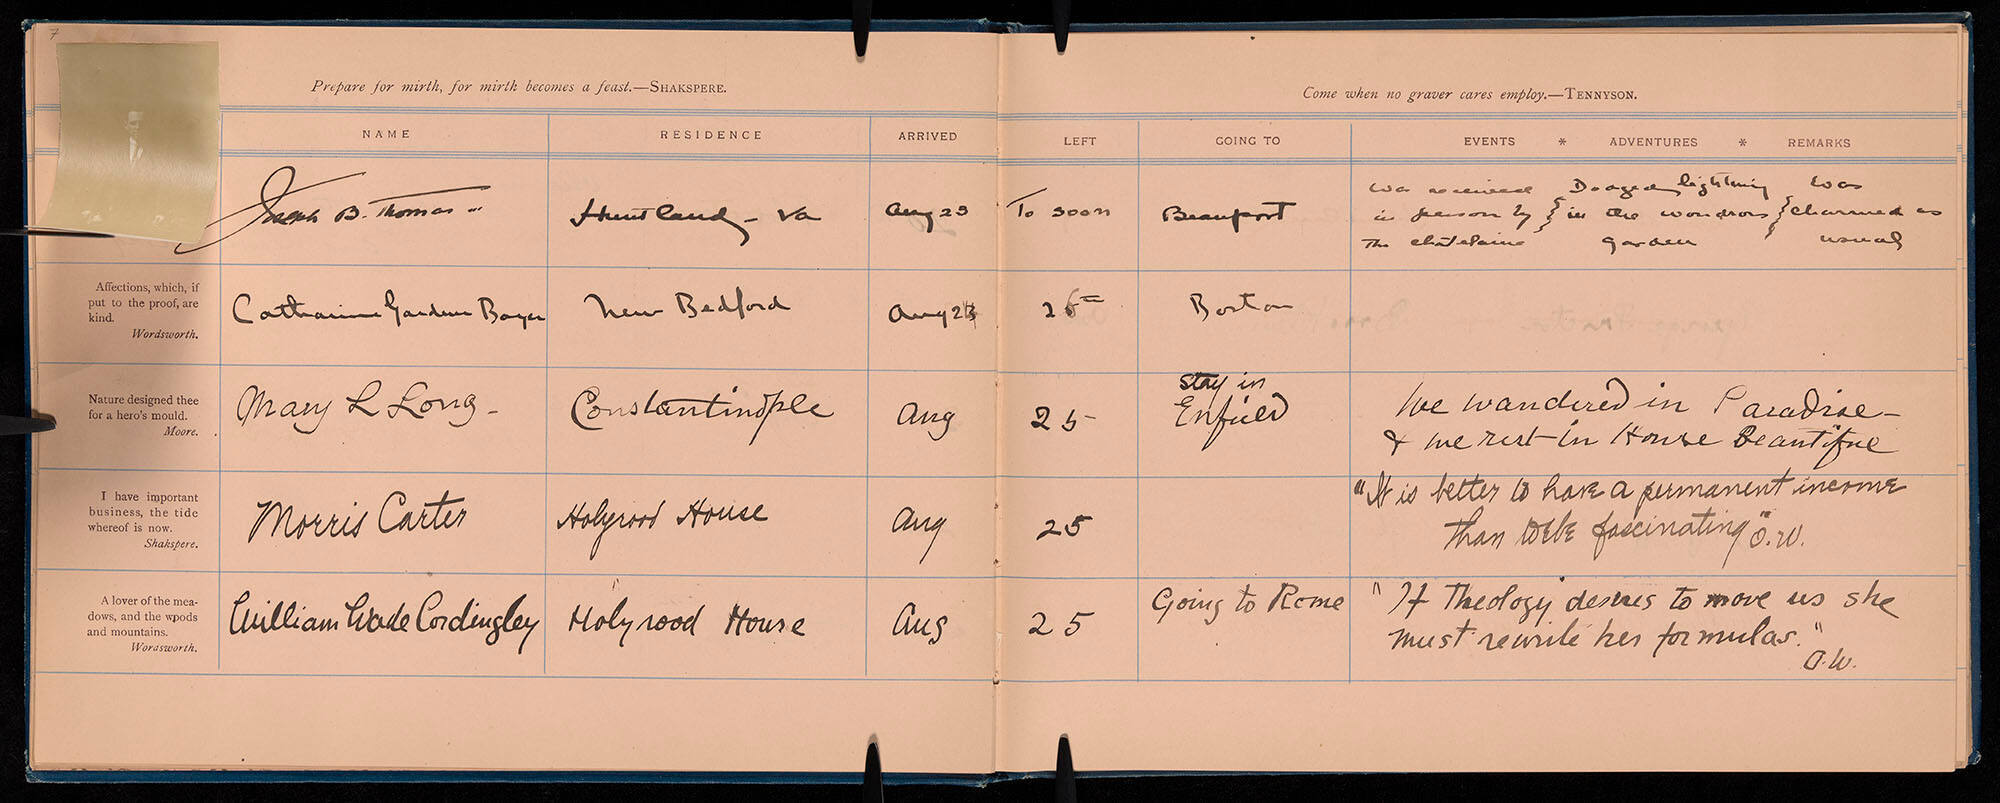 7
Prepare for mirth, for mirth becomes a feast.—SHAKSPERE.
Come when no graver cares employ.—TENNYSON.
NAME RESIDENCE ARRIVED LEFT GOING TO EVENTS * ADVENTURES * REMARKS
Joseph B. Thomas Huntland - Va Aug 23 To soon Beauport
was received } Dodged lightning } was
in person by } in the wondros } charmed as
The châtelaine garden usual
Affections, which, if
put to the proof, are
kind.
Wordsworth.
Catharine Gardner New Bedford Aug 23 26th Boston
Nature designed thee
for a hero's mould.
Moore.
Mary L Long - Constantinople Aug 25
stay in
Enfield
We wandered in Paradise -
& we rest in House Beautiful
I have important
business, the tide
whereof is now.
Shakspere.
Morris Carter Holyrood House Aug 25
"It is better to have a permanent income
than to be fascinating" O.W.
A lover of the mea-
dows, and the woods
and mountains.
Wordsworth.
William Wade Cordingley Holyrood House Aug 25 Going to Rome
"If Theology desires to move us she
must rewrite her formulas."
O.W.